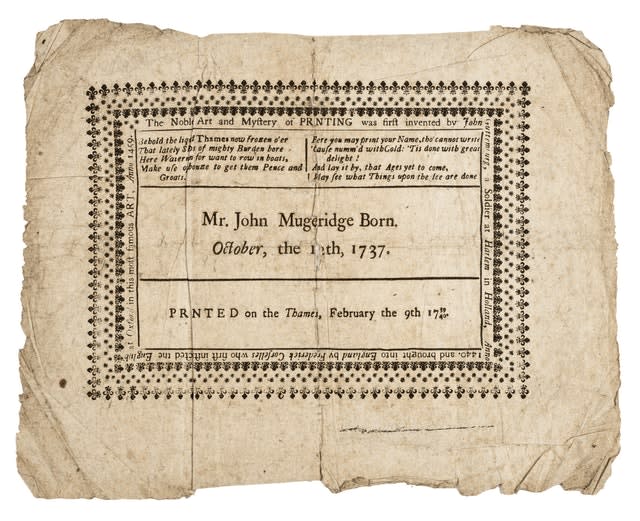 The Noble Art and Mystery of PRNTING was first invented by John
Faustenburg, a Soldier at Harlem in Holland, Anno
1440. and brought into England by Frederick Corselles who first instructed the English
at Oxford in this most famous ART, Anno 1459.
Behold the liquid Thames now frozen o'er
That lately Ships of mighty Burden bore
Here Watermen for want to row in boats,
Make use of booze to get them Pence and
Groats.
Here you may print your Name, tho' cannot write
'Cause numm'd with Cold: 'Tis done with great
delight!
And lay it by, that Ages yet to come,
May see what Things upon the Ice are done
Mr. John Mugeridge Born.
October, the th, 1737.
PRNTED on the Thames, February the 9th 17 39/40.